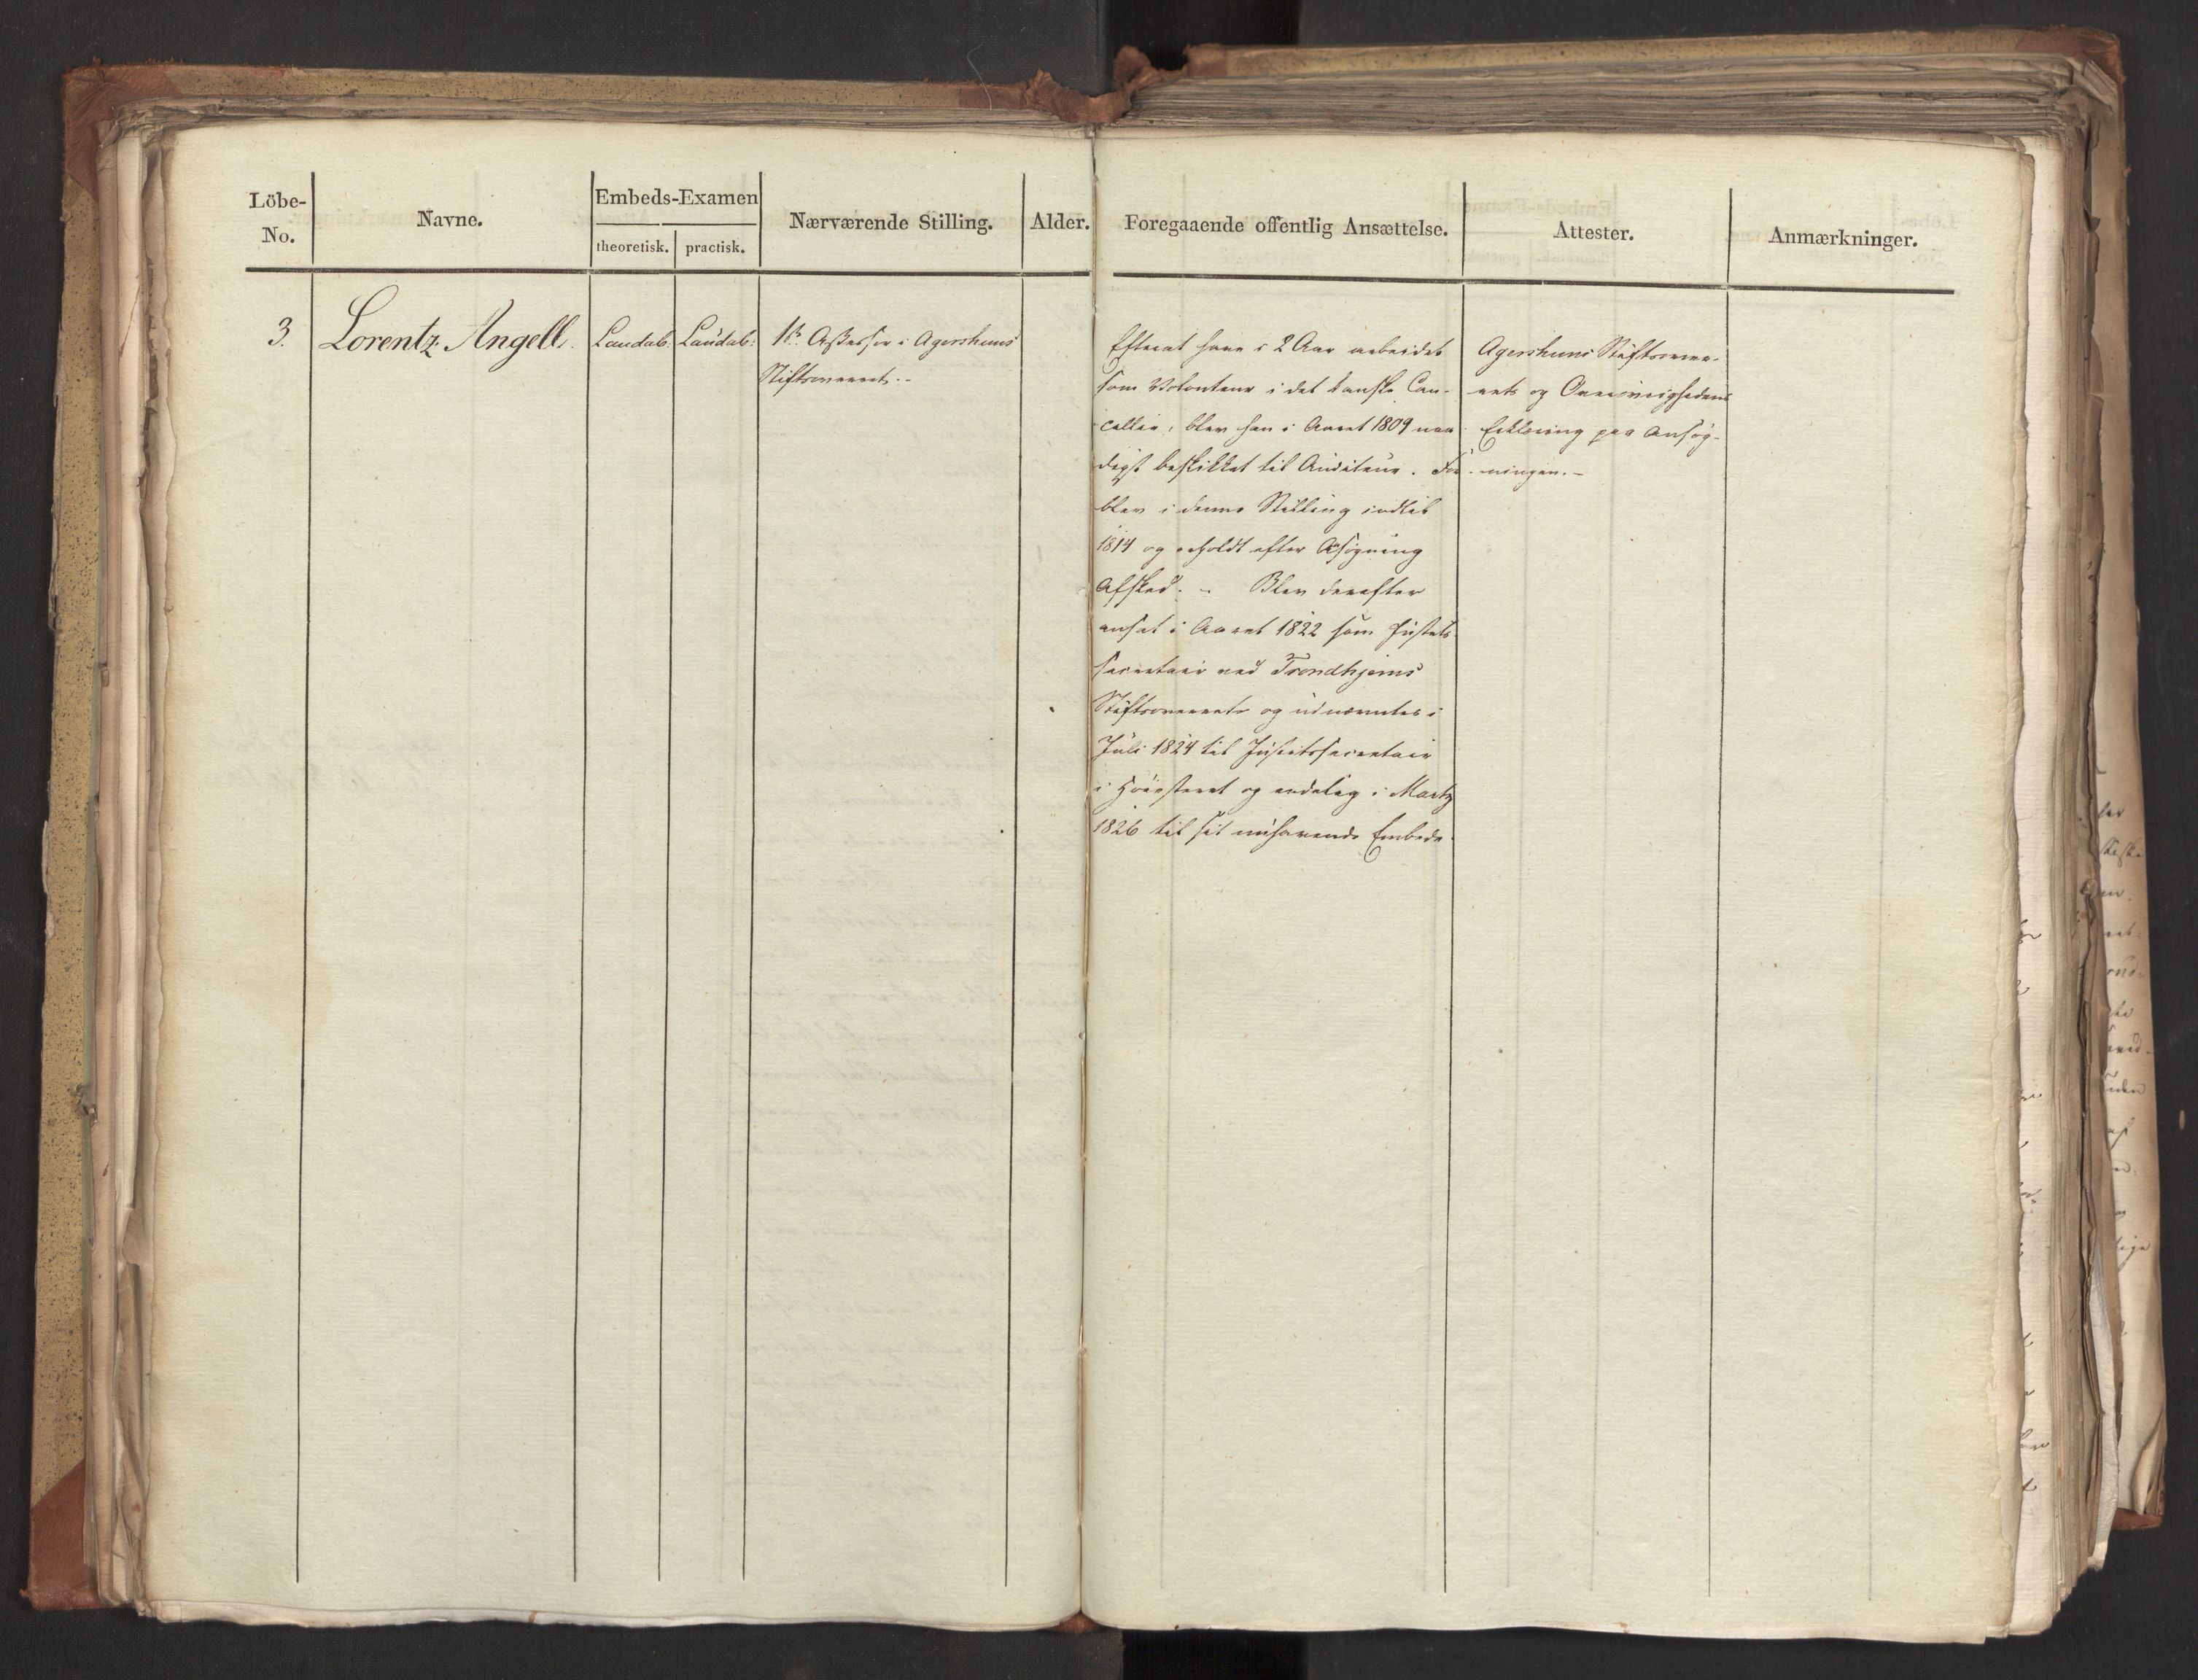 Löbe-
No.
Navne.
Embeds-Examen
theoretisk. practisk.
Nærværende Stilling.
Alder.
Foregaaende offentlig Ansættelse.
Attester.
Anmærkninger.
3.
Lorentz Angell.
Laudab.
Laudab:
1ste Assessor i Agershuus
Stiftsoverret.-
Efterat have i 2 Aar arbeidet
som Volonteur i det danske Can-
cellie, blev han i Aaret 1809 naa-
digst beskikket til Auditeur. For-
blev i denne Stilling indtil
1814 og erholdt efter Ansøgning
Afsked. - Blev derefter
ansat i Aaret 1822 som Justits-
secretair ved Trondhjems
Stiftsoverret og udnævntes i
Juli 1824 til Justitssecretair
i Høiesteret og endelig i Martz
1826 til sit nuhavende Embede.
Agershuus Stiftsover-
rets og Overøvrighedens
Erklæring paa Ansøg-
ningen.-